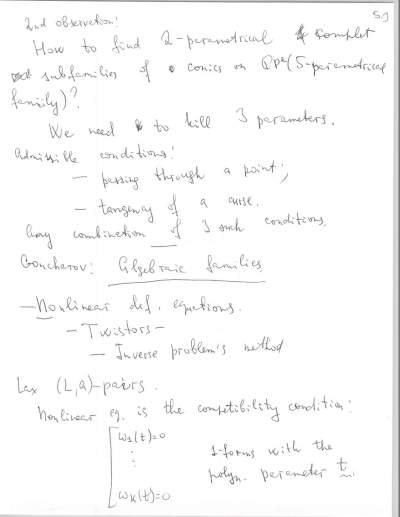 51
2nd observation!
How to find 2-parametrical complet
subfamilies of conics on CP²(5-parametrical
family)?
We need to kill 3 parameters.
Admissible conditions:
— passing through a point;
— tangency of a curve.
Any combination of 3 such conditions.
Goncharov: Algebraic families
— Nonlinear dif. equations.
— Twistors —
— Inverse problem's method
Lax (L,A)-pairs.
Nonlinear eq. is the compatibility condition:
ω₁(t)=0
⋮
ωₖ(t)=0
1-forms with the
polyn. parameter t